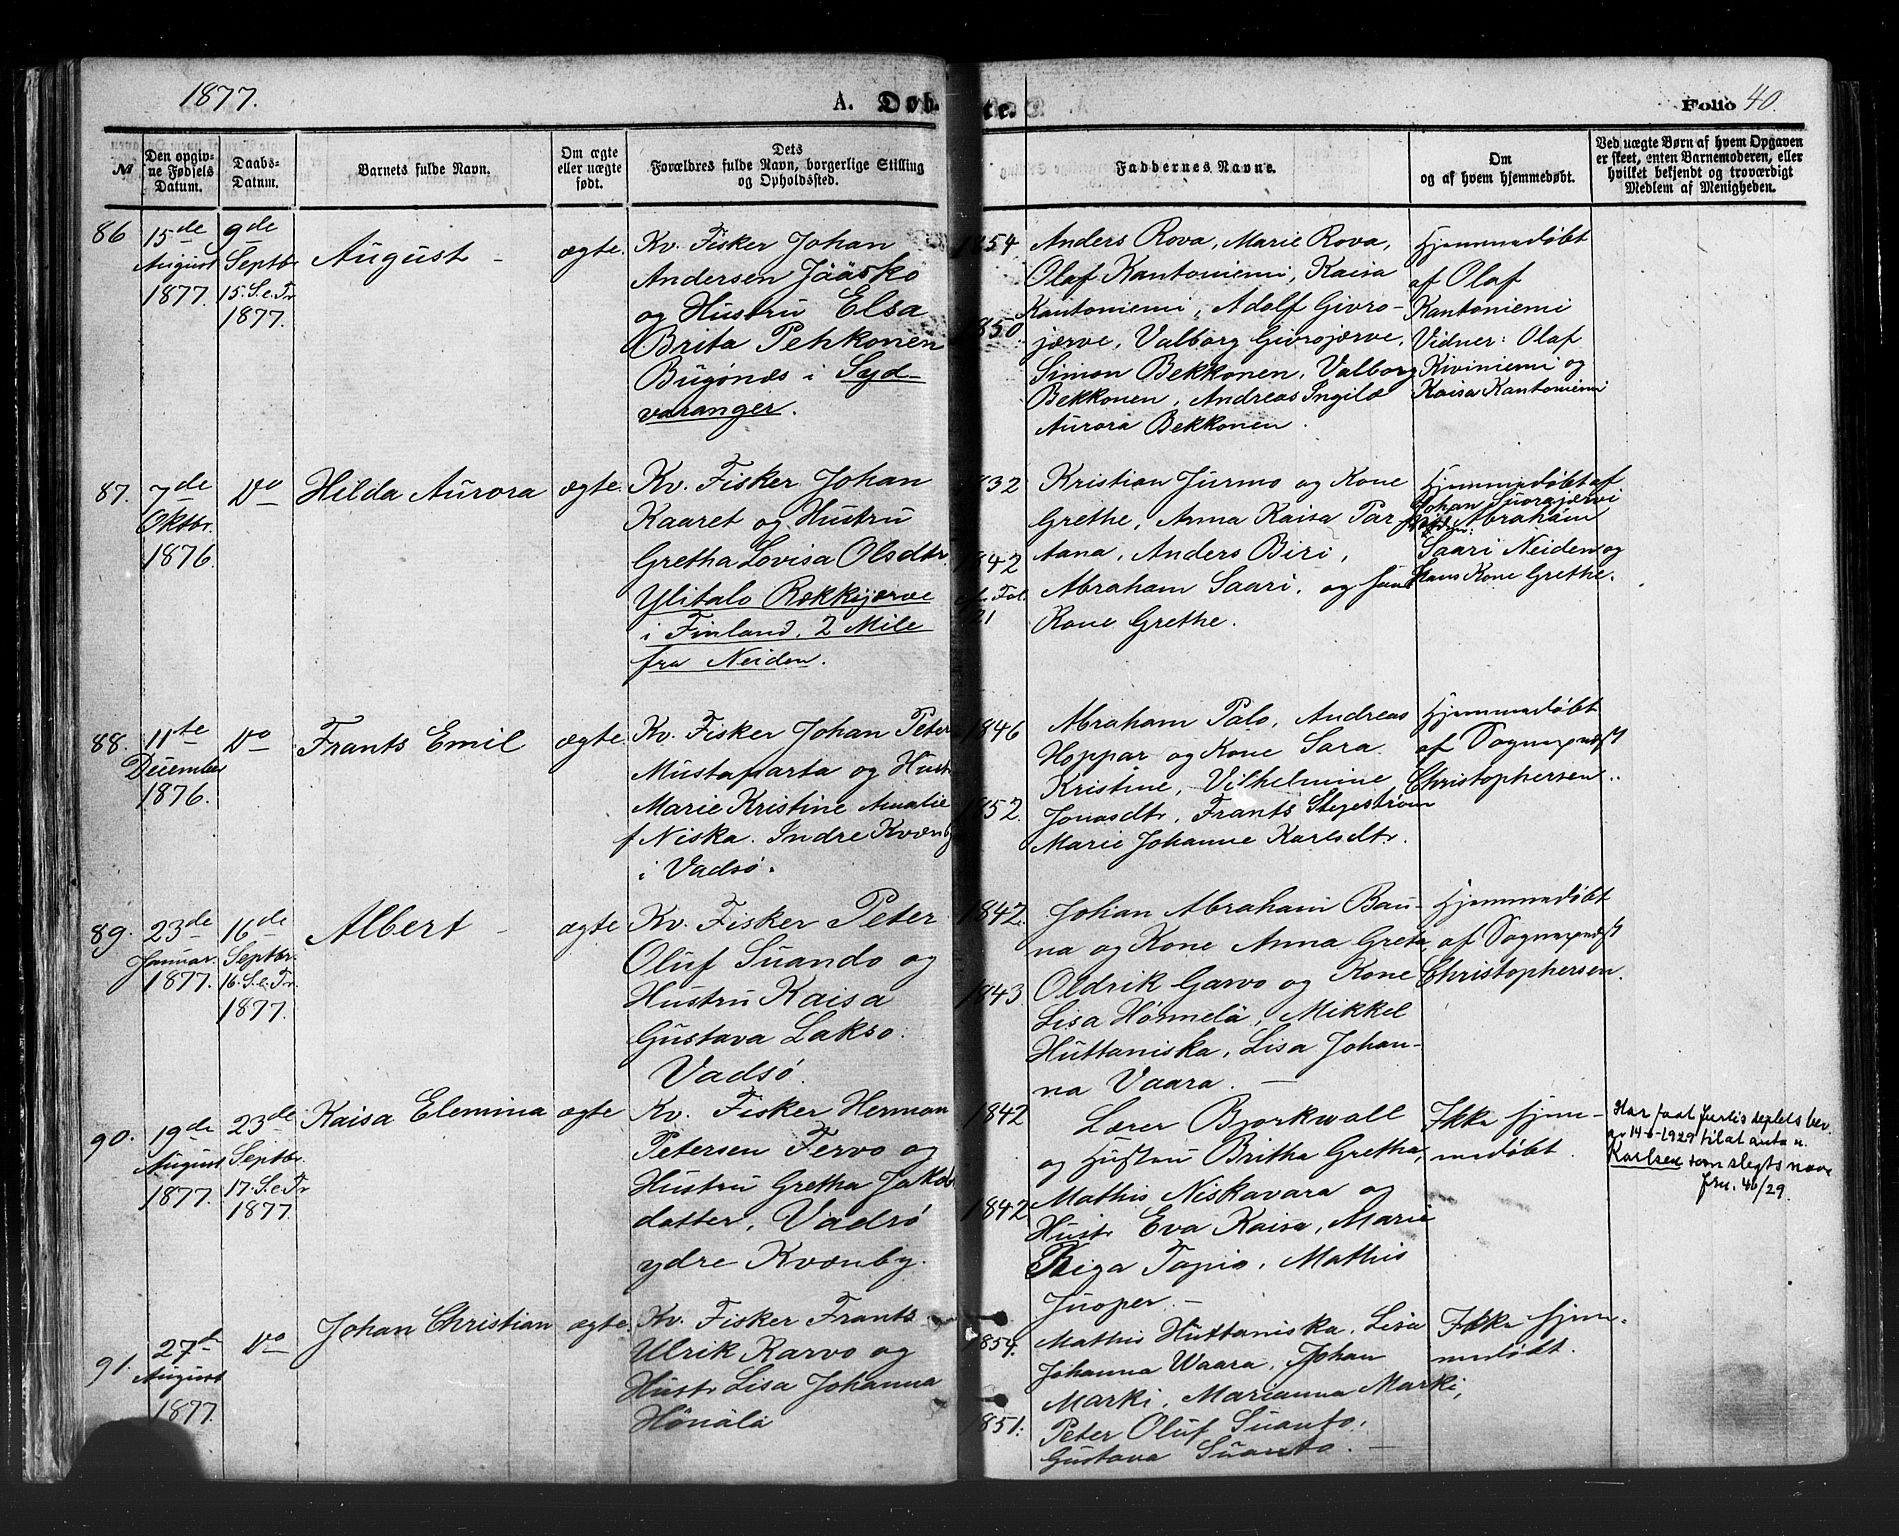 1877.
A. Døb-
te.
Folio 40.
№
Den opgiv-
ne Fødsels
Datum.
Daabs-
Datum.
Barnets fulde Navn.
Om ægte
eller uægte
født.
Dets
Forældres fulde Navn, borgerlige Stilling
og Opholdssted.
Faddernes Navne.
Om
og af hvem hjemmedøbt.
Ved uægte Børn af hvem Opgaven
er skeet, enten Barnemoderen, eller
hvilket bekjendt og troværdigt
Medlem af Menigheden.
86
15de
August
1877.
9de
Septbr.
15. S. e. Tr.
1877.
August
ægte.
Kv. Fisker Johan
Andersen Jääsko
og Hustru Elsa
Brita Pehkonen
Bugönæs i Syd-
varanger.
1854
1850
Anders Rova, Marie Rova,
Olaf Kantoniemi, Kaisa
Kantoniemi, Adolf Givro-
jærve, Valborg Givrojærve,
Simon Bekkonen, Valborg
Bekkonen, Andreas Ingilæ
Aurora Bekkonen.
Hjemmedøbt
af Olaf
Kantoniemi
Vidner: Olaf
Kiviniemi og
Kaisa Kantoniemi
87.
7de
Oktbr.
1876.
Do
Hilda Aurora
ægte.
Kv. Fisker Johan
Kaaret og Hustru
Gretha Lovisa Olsdtr.
Ylitalo Rekkijærve
i Finland, 2 Mile
fra Neiden.
832
1842
Fol.
21
Kristian Jurmo og Kone
Grethe, Anna Kaisa Par-
tana, Anders Biri,
Abraham Saari, og
Kone Grethe.
Hjemmedøbt af
Johan Suorajærvi
Abraham
Saari Neiden og
Hans Kone Grethe.
88.
11te
December
1876.
Do
Frants Emil
ægte.
Kv. Fisker Johan Peter
Mustaparta og Hust
Marie Kristine Amalie
f Niska. Indre Kvænby
i Vadsö.
1846
1852.
Abraham Palo, Andreas
Hoppar og Kone Sara
Kristine, Vilhelmine
Jonasdtr, Frants Stegestrøm
Marie Johanne Karlsdtr.
Hjemmedøbt
af Sognepræst
Christophersen.
89.
23de
Januar.
1877.
16de
Septbr.
16. S. e. Tr
1877.
Albert
ægte
Kv. Fisker Peter
Oluf Suando og
Hustru Kaisa
Gustava Lakso.
Vadsö.
1842.
1843.
Johan Abraham Bau-
na og Kone Anna Greta
Oldrik Garvo og Kone
Lisa Hönnelä, Mikkel
Huttaniska, Lisa Johan-
na Vaara.
Hjemmedøbt
af Sognepræst
Christophersen.
90.
19de
August
1877.
23de
Septbr.
17. S. e. Tr
1877.
Kaisa Elemina
ægte
Kv. Fisker Herman
Petersen Fervo og
Hustru Gretha Jakobs
datter, Vadsö
ydre Kvænby.
1842
1842
Lærer Bjorkwall
og Hustru Britha Gretha,
Mathis Niskavara og
Hustr Eva Kaisa, Marie
Riga Tapio, Mathis
Juoper.
Ikke hjem-
medøbt.
Har faat Justisdeptets bev.
av 14-6-1929 til at anta n.
Karlsen som slegtsnavn
jnr. 46/29.
91.
27d
August
1877.
Do
Johan Christian
ægte.
Kv. Fisker Frants
Ulrik Karvo og
Hustr Lisa Johanna
Hönälä
1854.
1851:
Mathis Huttaniska, Lisa
Johanna Waara, Johan
Marki, Marianna Marki,
Peter Oluf Suanto,
Gustava Suanto.
Ikke hjem-
medøbt.